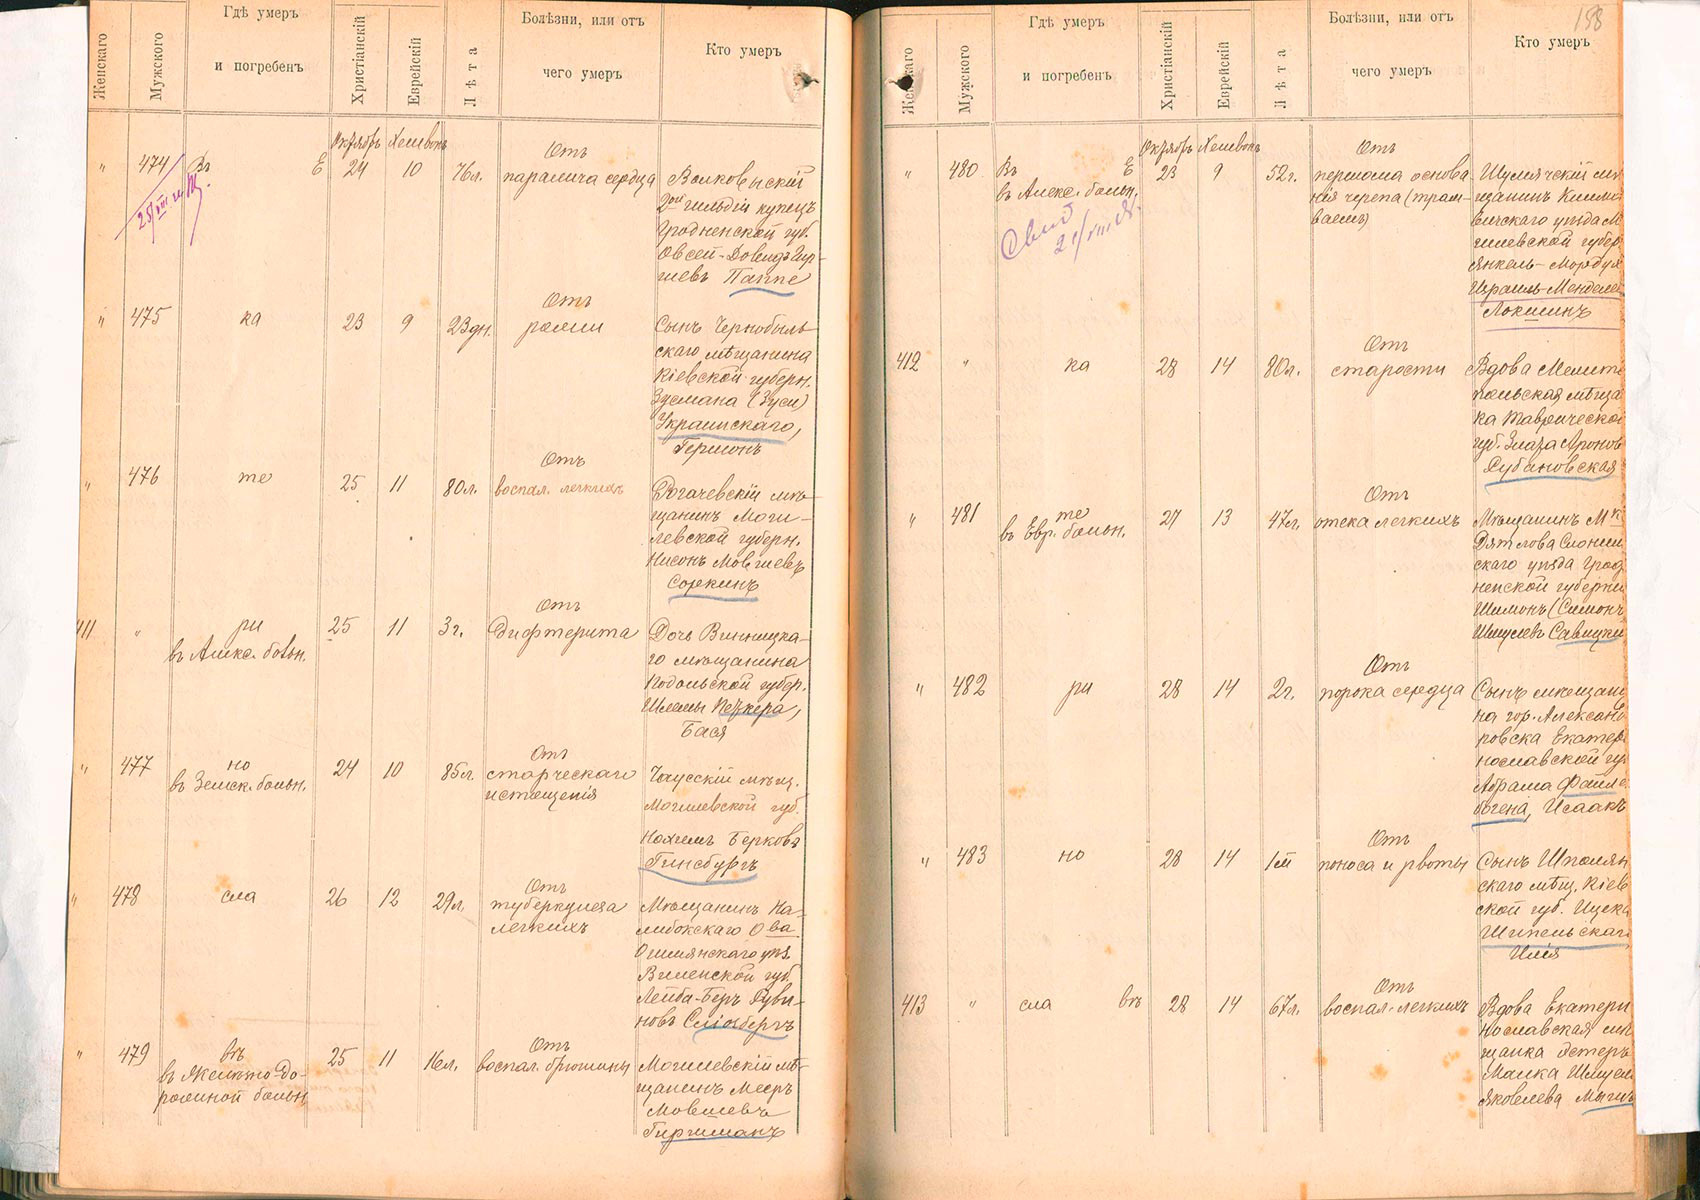 Женскаго
Мужского
Гдѣ умеръ
и погребенъ
Христіанскій
Еврейскій
Лѣта
Болѣзни, или отъ
чего умеръ
Кто умеръ
Октябрь Хешвонъ
" 474 Въ Е 24 10 76л.
Отъ
паралича сердца
Волковыскій
2ой гильдіи купецъ
Гродненской губ.
Овсей-Довидъ Гир-
шевъ Паппе
" 475 ка 23 9 23дн.
Отъ
рожи
Сынъ Чернобыль-
скаго мѣщанина
Кіевской губерн.
Зусмана (Зуси)
Украинскаго,
Гершонъ
" 476 те 25 11 80л.
Отъ
воспал. легкихъ
Рогачевскій мѣ-
щанинъ Моги-
левской губерн.
Нисонъ Мовшевъ
Соркинъ
411 " ри
въ Алекс. больн.
25 11 3г.
Отъ
дифтерита
Дочь Винницка-
го мѣщанина
Подольской губер.
Шлемы Печкера,
Бася
" 477 но
въ Земск. больн.
24 10 85л.
Отъ
старческаго
истощенія
Чаусскій мѣщ.
Могилевской губ.
Нохемъ Берковъ
Гинсбургъ
" 478 сла 26 12 29л.
Отъ
туберкулеза
легкихъ
Мѣщанинъ На-
либокскаго О ва
Ошмянскаго уѣз.
Виленской губ.
Лейба-Беръ Руви-
новъ Сліозбергъ
" 479 въ
въ Желѣзно До-
рожной больн.
25 11 16л.
Отъ
воспал. брюшины
Могилевскій мѣ-
щанинъ Мееръ
Мовшевъ
Гиршманъ
188
Женскаго
Мужского
Гдѣ умеръ
и погребенъ
Христіанскій
Еврейскій
Лѣта
Болѣзни, или отъ
чего умеръ
Кто умеръ
Октябрь Хешвонъ
" 480 Въ Е
въ Алекс. больн.
23 9 52г.
Отъ
перелома основа
нія черепа (трам-
ваемъ)
Шумячскій мѣ
щанинъ Климо
вичскаго уѣзда М
гилевской губер
Янкель-Мордух
Израиль-Менделе
Локшинъ
412 " ка 28 14 80л.
Отъ
старости
Вдова Мелито
польская мѣща
ка Таврической
губ. Злата Аронов
Рубановская
" 481 те
въ Евр. больн.
27 13 47л.
Отъ
отека легкихъ
Мѣщанинъ М к
Дятлова Слоним
скаго уѣзда Грод
ненской губерніи
Шимонъ (Симонъ
Шмулевъ Савицкі
" 482 ри 28 14 2г.
Отъ
порока сердца
Сынъ мѣщани
на гор. Александ
ровска Екатери
нославской гу
Абрама Файле
богена, Исаакъ
" 483 но 28 14 1м
Отъ
поноса и рвоты
Сынъ Шполян
скаго мѣщ. Кіев
ской губ. Ицека
Шпильскаг
Илія
413 " сла въ 28 14 67л.
Отъ
воспал. легкихъ
Вдова Екатери
нославская мѣ
щанка Эстеръ
Малка Шмуел
Яковлева